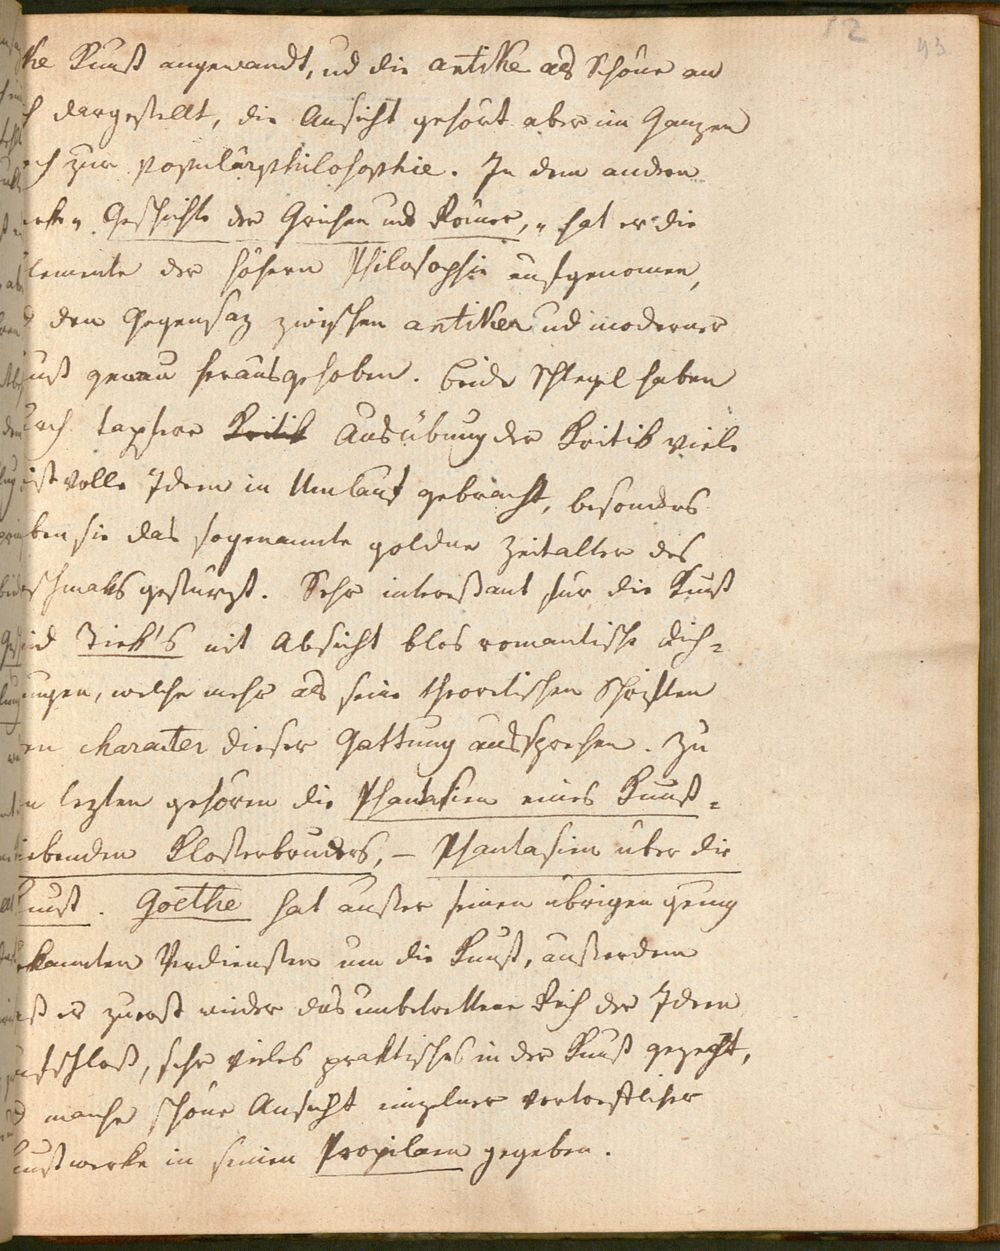 12 93
he Kunst angewandt, ud die antike als Schöne an
ch dargestellt, die Ansicht gehört aber im Ganzen
ch zur Populärphilosophie. In dem andern
erke „Geschichte der Grichen und Römer," hat er die
lemente der höhern Philosophie aufgenomen,
d den Gegensaz zwischen antiker ud moderner
unst genau herausgehoben. beide Schlegel haben
urch tapfere Kritik Ausübung der Kritik viele
istvolle Ideen in Umlauf gebracht, besonders
ben sie das sogenannte goldne Zeitalter des
schmaks gestürzt. Sehr interessant für die Kunst
ind Tiek's mit Absicht blos romantische Dich-
ungen, welche mehr als seine theoretischen Schriften
en charakter dieser Gattung aussprechen. Zu
n lezten gehören die Phantasien eines Kunst-
iebenden Klosterbruders, – Phantasien über die
unst. Goethe hat ausser seinen übrigen genug
ekannten Verdiensten um die Kunst, ausserdem
ß er zuerst wieder das unbetrettene Reich der Ideen
ufschloß, sehr vieles praktisches in der Kunst gezeigt,
d manche schöne Ansicht einzelner vortreflicher
unstwerke in seinen Propiläen gegeben.